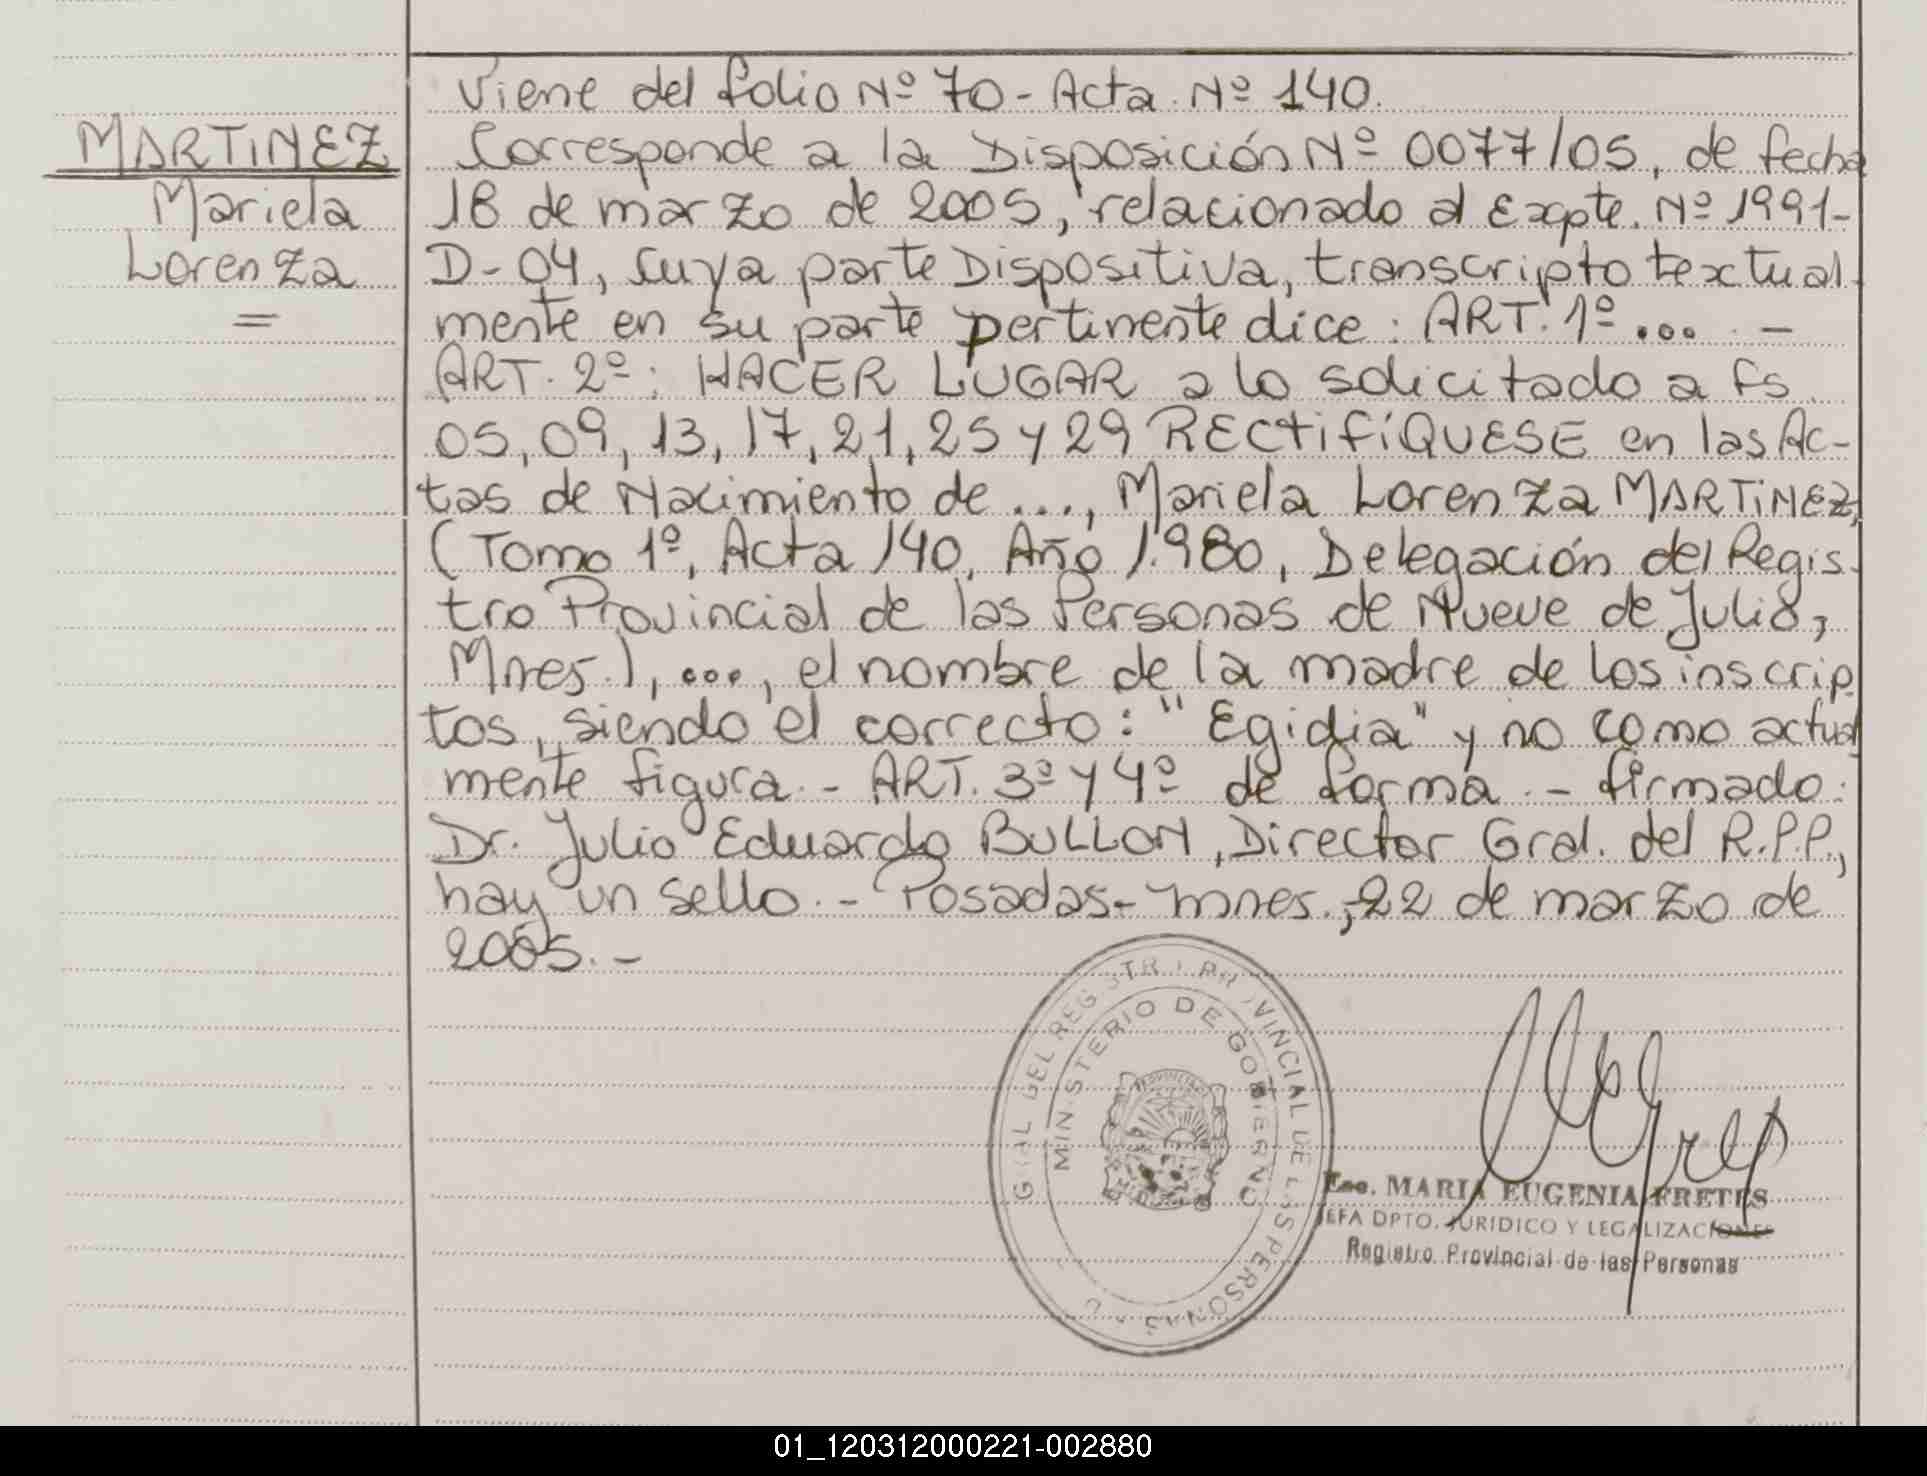 Viene del folio Nº 70 - Acta Nº 140.
MARTINEZ
Mariela
Lorenza
=
Corresponde a la Disposición Nº 0077/05, de fecha
18 de marzo de 2005, relacionado al Expte. Nº 1991-
D-04, cuya parte Dispositiva, transcripto textual-
mente en su parte pertinente dice: ART. 1º ... . -
ART. 2º: HACER LUGAR a lo solicitado a fs.
05, 09, 13, 17, 21, 25 y 29 RECTIFÍQUESE en las Ac-
tas de Nacimiento de ..., Mariela Lorenza MARTINEZ,
(Tomo 1º, Acta 140, Año 1.980, Delegación del Regis-
tro Provincial de las Personas de Nueve de Julio,
Mnes.), ..., el nombre de la madre de los inscrip
tos, siendo el correcto: "Egidia" y no como actual
mente figura. - ART. 3º y 4º de forma. - firmado:
Dr. Julio Eduardo BULLON, Director Gral. del R.P.P.,
hay un sello. - Posadas - Mnes., 22 de marzo de
2005. -
GRAL DEL REGISTRO PROVINCIAL DE LAS PERSONAS
MINISTERIO DE GOBIERNO
Esc. MARIA EUGENIA FRETES
JEFA DPTO. JURIDICO Y LEGALIZACIONES
Registro Provincial de las Personas
01_120312000221-002880